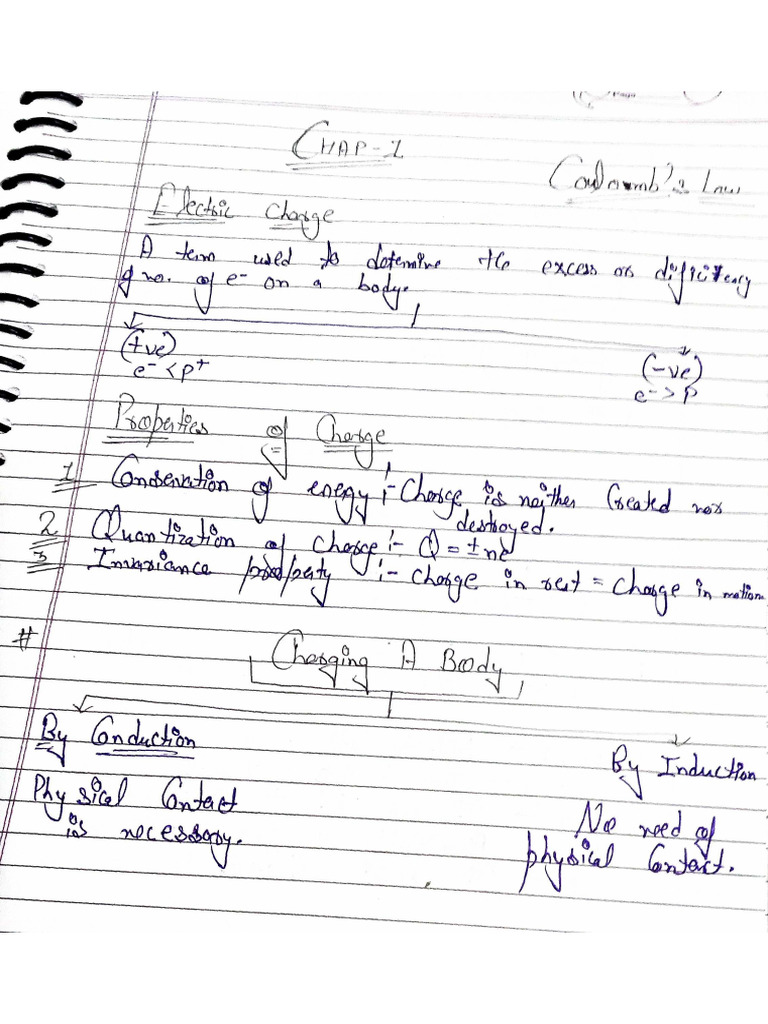 CHAP-1
Coulomb's Law
Electric Charge
A term used to determine the excess or dificitency
of no. of e⁻ on a body.
(+ve) (-ve)
e⁻ < p⁺ e⁻ > p
Properties of Charge
1 Conservation of energy :- Charge is neither Created nor
destroyed.
2 Quantization of charge :- Q = ±ne
3 Invariance property :- charge in rest = charge in motion
# Charging A Body
By Conduction By Induction
Physical Contact No need of
is necessary. physical Contact.